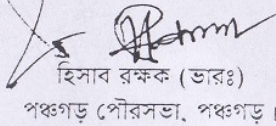 হিসাব রক্ষক (ভারঃ)
পঞ্চগড় পৌরসভা, পঞ্চগড়।